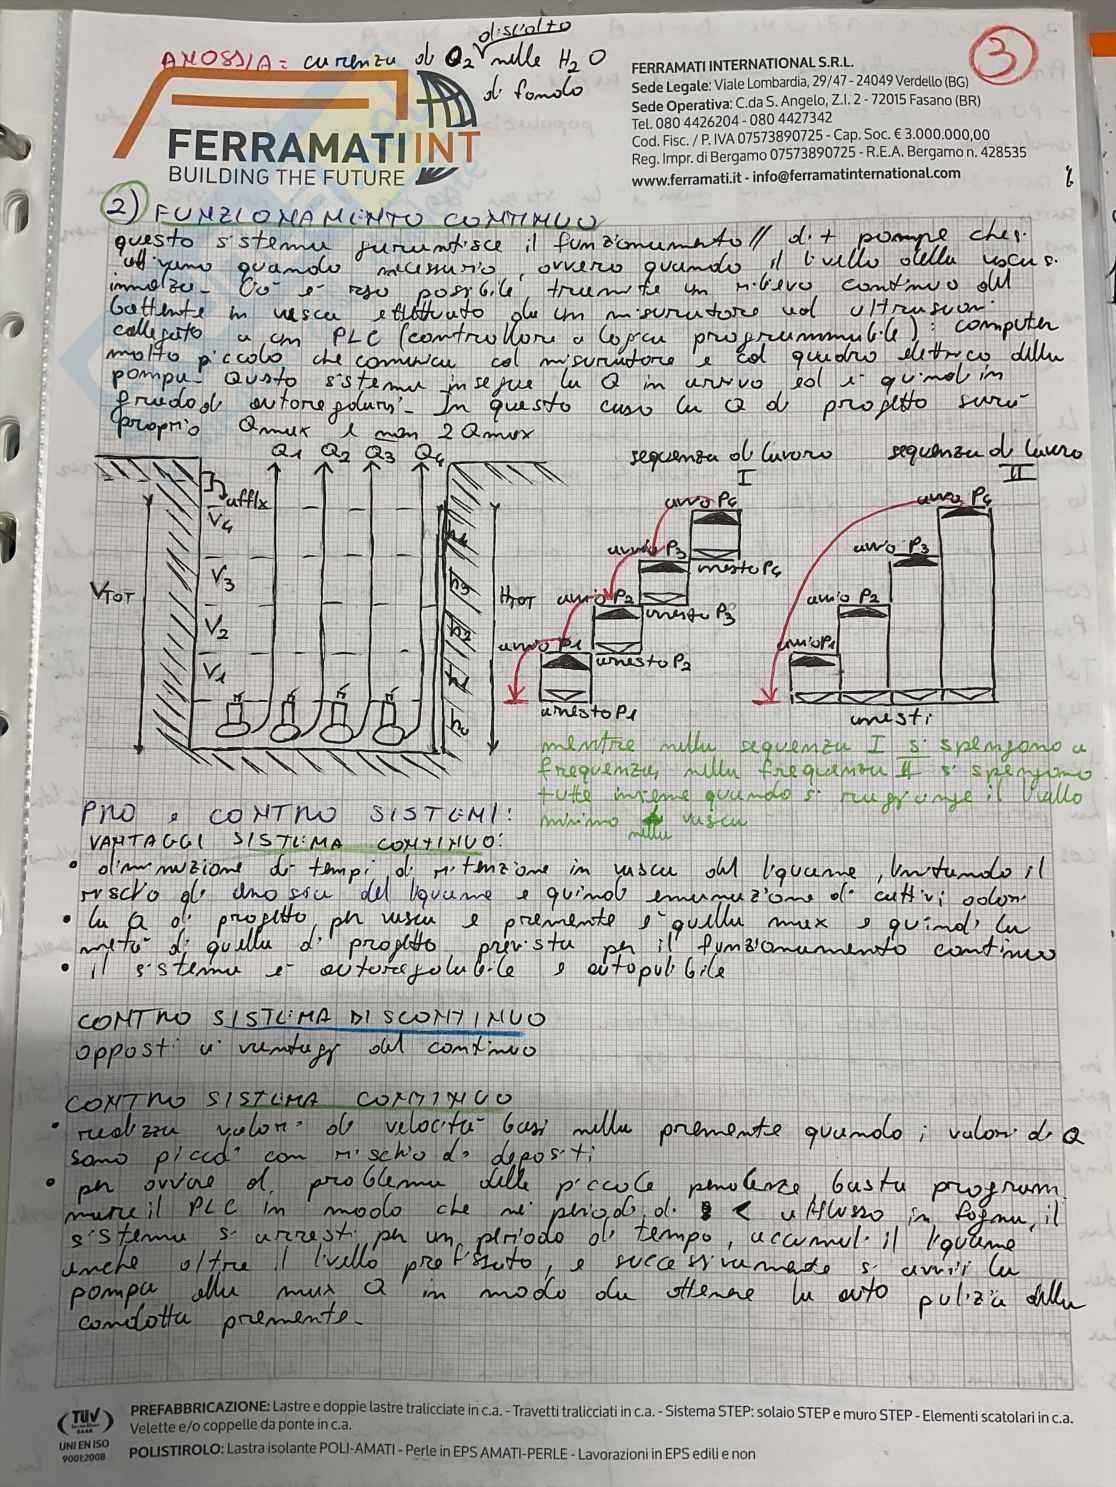 discolto
ANOSSIA = carenza di O2 nelle H2O
di fondo
3
FERRAMATI INT
BUILDING THE FUTURE
FERRAMATI INTERNATIONAL S.R.L.
Sede Legale: Viale Lombardia, 29/47 - 24049 Verdello (BG)
Sede Operativa: C.da S. Angelo, Z.I. 2 - 72015 Fasano (BR)
Tel. 080 4426204 - 080 4427342
Cod. Fisc. / P. IVA 07573890725 - Cap. Soc. € 3.000.000,00
Reg. Impr. di Bergamo 07573890725 - R.E.A. Bergamo n. 428535
www.ferramati.it - info@ferramatinternational.com
2) FUNZIONAMENTO CONTINUO
questo sistema garantisce il funzionamento // di + pompe che si
attivano quando necessario, ovvero quando il livello della vasca si
innalza. Ciò è reso possibile tramite un rilievo continuo del
battente in vasca effettuato da un misuratore ad ultrasuoni
collegato a un PLC (controllore a logica programmabile): computer
molto piccolo che comunica col misuratore e col quadro elettrico della
pompa. Questo sistema insegue la Q in arrivo ed è quindi in
grado di autoregolarsi. In questo caso la Q di progetto sarà
proprio Qmax e non 2Qmax
Q1 Q2 Q3 Q4
sequenza di lavoro I
sequenza di lavoro II
afflx
V4
V3
V2
V1
VTOT
HTOT
h4
h3
h2
h1
avvio P4
avvio P3
arresto P4
avvio P2
arresto P3
avvio P1
arresto P2
arresto P1
avvio P4
avvio P3
avvio P2
avvio P1
arresti
mentre nella sequenza I si spengono a
frequenza, nella frequenza II si spengono
tutte insieme quando si raggiunge il livello
minimo nella vasca
PRO e CONTRO SISTEMI:
VANTAGGI SISTEMA CONTINUO:
• diminuzione di tempi di ritenzione in vasca del liquame, limitando il
rischio di anossia del liquame e quindi emanazione di cattivi odori
• la Q di progetto per vasca e premente è quella max e quindi la
metà di quella di progetto prevista per il funzionamento continuo
• il sistema è autoregolabile e autopulibile
CONTRO SISTEMA DISCONTINUO
opposti ai vantaggi del continuo
CONTRO SISTEMA CONTINUO
• realizza valori di velocità bassi nella premente quando i valori di Q
sono piccoli con rischio di depositi
• per ovviare al problema delle piccole pendenze basta program
mare il PLC in modo che nei periodi di < afflusso in fogna, il
sistema si arresti per un periodo di tempo, accumuli il liquame
anche oltre il livello prefissato, e successivamente si avvii la
pompa alla max Q in modo da ottenere la auto pulizia della
condotta premente.
TÜV
UNI EN ISO
9001:2008
PREFABBRICAZIONE: Lastre e doppie lastre tralicciate in c.a. - Travetti tralicciati in c.a. - Sistema STEP: solaio STEP e muro STEP - Elementi scatolari in c.a.
Velette e/o coppelle da ponte in c.a.
POLISTIROLO: Lastra isolante POLI-AMATI - Perle in EPS AMATI-PERLE - Lavorazioni in EPS edili e non